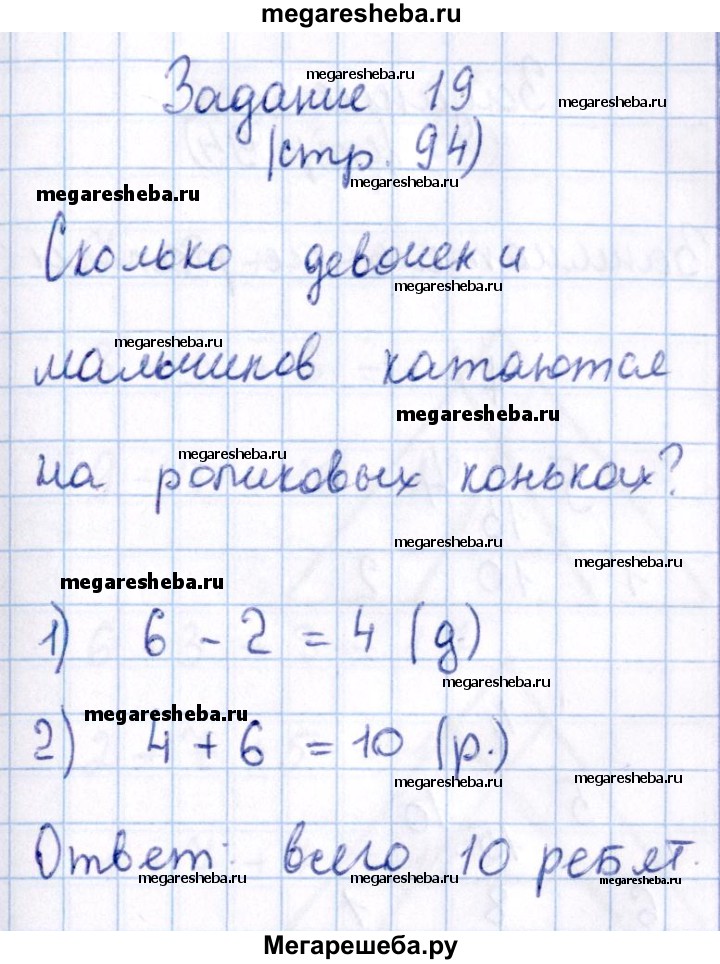 megaresheba.ru
Задание 19
megaresheba.ru
megaresheba.ru
(стр. 94)
megaresheba.ru
megaresheba.ru
Сколько девочек и
megaresheba.ru
megaresheba.ru
мальчиков катаются
megaresheba.ru
megaresheba.ru
на роликовых коньках?
megaresheba.ru
megaresheba.ru
megaresheba.ru
1) 6 - 2 = 4 (д)
megaresheba.ru
megaresheba.ru
2) 4 + 6 = 10 (р.)
megaresheba.ru
megaresheba.ru
Ответ: всего 10 ребят.
megaresheba.ru
megaresheba.ru
megaresheba.ru
Мегарешеба.ру